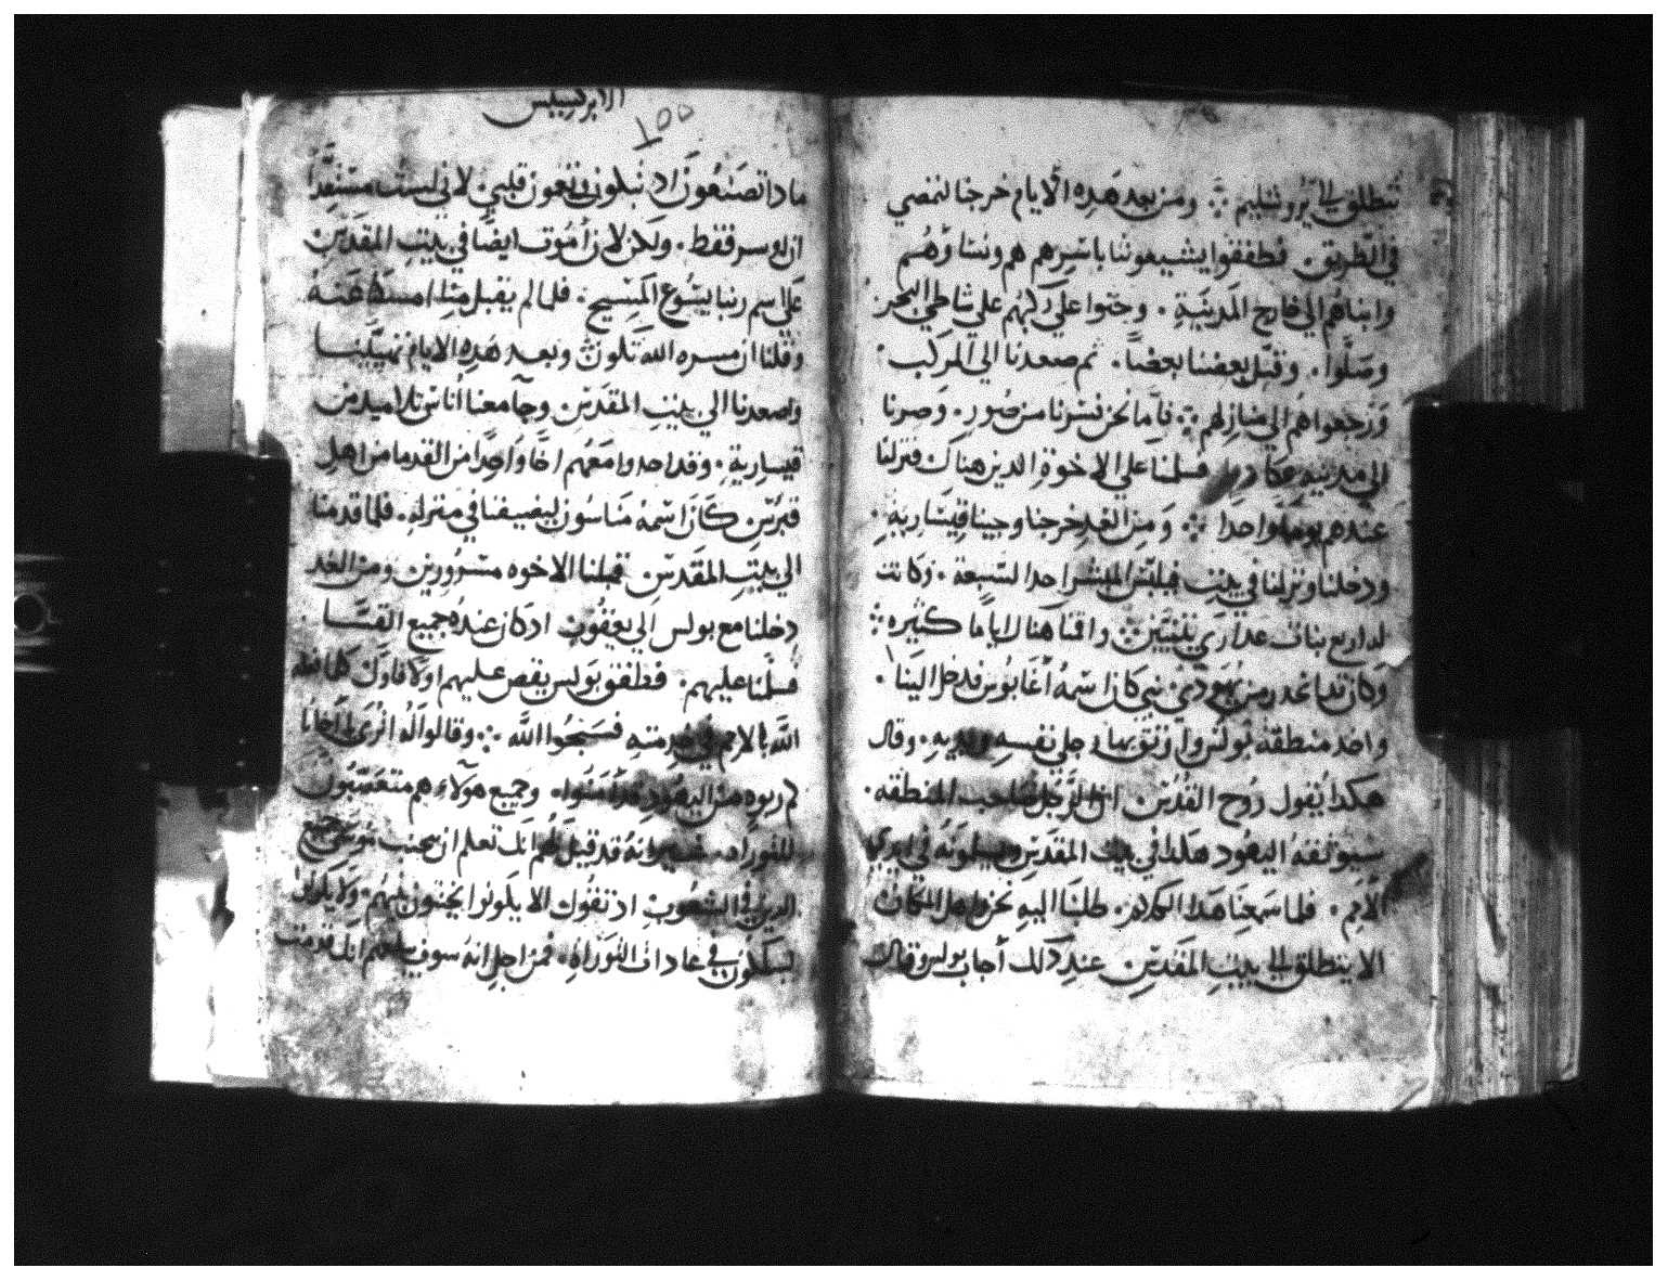 تنطلق الي يروشليم ⁘ ومن بعد هَذِه الايام خرجنا لنمضي
في الطريق. فطفقوا يشيعوننا باسرهم هم ونساؤهُم
وابناهُم الي خارج المدينةِ. وجثوا علي ركبهُم علي شاطي البحر
وصَلَّوا. وقبَّل بعضنا بعضاً. ثم صعدنا الي المركب
وَرَجعواهُم الي منازلهم ⁘ فاَما نحن فسرنا من صُور. وَصرنا
الي مدينة عكا فسلمنا علي الاخوة الدين هناك فنزلنا
عندهم يوماً واحدا ⁘ وَمن الغدِ خرجنا وجينا قيسَاريةِ.
ودخلنا ونزلنا في بيت فيلبس المبشر احدا السبعة. وَكانت
له اربع بنات عدارَي يتنبَين ⁘ واقمنا هناك اياماً كثيره ⁘
وَكان قد انحدر من يهُودي نبي كان اسمهُ اغَابُوس فدخل الينا.
واخد منطقة بولس واوثق بها رجلي نفسهِ ويديهِ. وقال
هكدا يُقول رُوح القُدس ان الرَّجل صاحب المنطقه.
سيوثقهُ اليهُود هكدا في بيت المقدس ويسلمونَه في ايدي
الامم. فلما سمعنَا هَدا الكلام. طلبَنا اليهِ نحن واهل المكان
الا ينطلق الي بيتِ المقدسِ عندِ دَلك أجاب بولس وقال
الابركسيس
١٥٥
ما دا تصنعُونَ اد تبلون وتفجعون قلبي. لاني لست مستعِدًّا
ان اوسر فقط. ولكن لان أمُوت ايضًا في بيتِ المقدسِ
علَي اسم ربنا يسُوع المَسيح. فلما لم يقبل منا امسكنا عَنهُ
وقلنا ان مسره الله تكون ⁘ وبعد هَدِه الايام تهيَّينا
واصعدنا الي بيتِ المقدَس وجآ معنا أناس تلاميد من
قيسارية. وقد اخدوا معَهُم اخًا واحِدًا من القدما من اهل
قبرس. كَان اسمهُ مناسُون ليضيفنا في منزلهِ. فلما قدمنا
الي بيتِ المقدسِ قبلنا الاخوه مسرُورين ومن الغد
دِخلنا مع بولس الي يعقُوب ادكان عندُه جميع القسَّا
فسلَّمنا عليهم. فطفق بَولس يقص عليهم اولاً فاولاً كلما فعله
اللَّه بالامم في خدمتهِ فسَبحُوا اللَّه ⁘ وقالوا لهُ انرَي يا اخانا
كم ربوه من اليهُودِ قد امنُوا. وجميع هَولآء هم متعصّبُون
للتوراه. انهُ قد قيل لهُم انك تعلم ان يجنب مُوسَي جميع
الدين في الشعُوبِ اد تقُول الا يكونوا يختنون بنيهُم. ولا يكونوا
يسلكون في عادات التورَاةِ. فمن اجل انه سوف يسمعهم انك قدمت